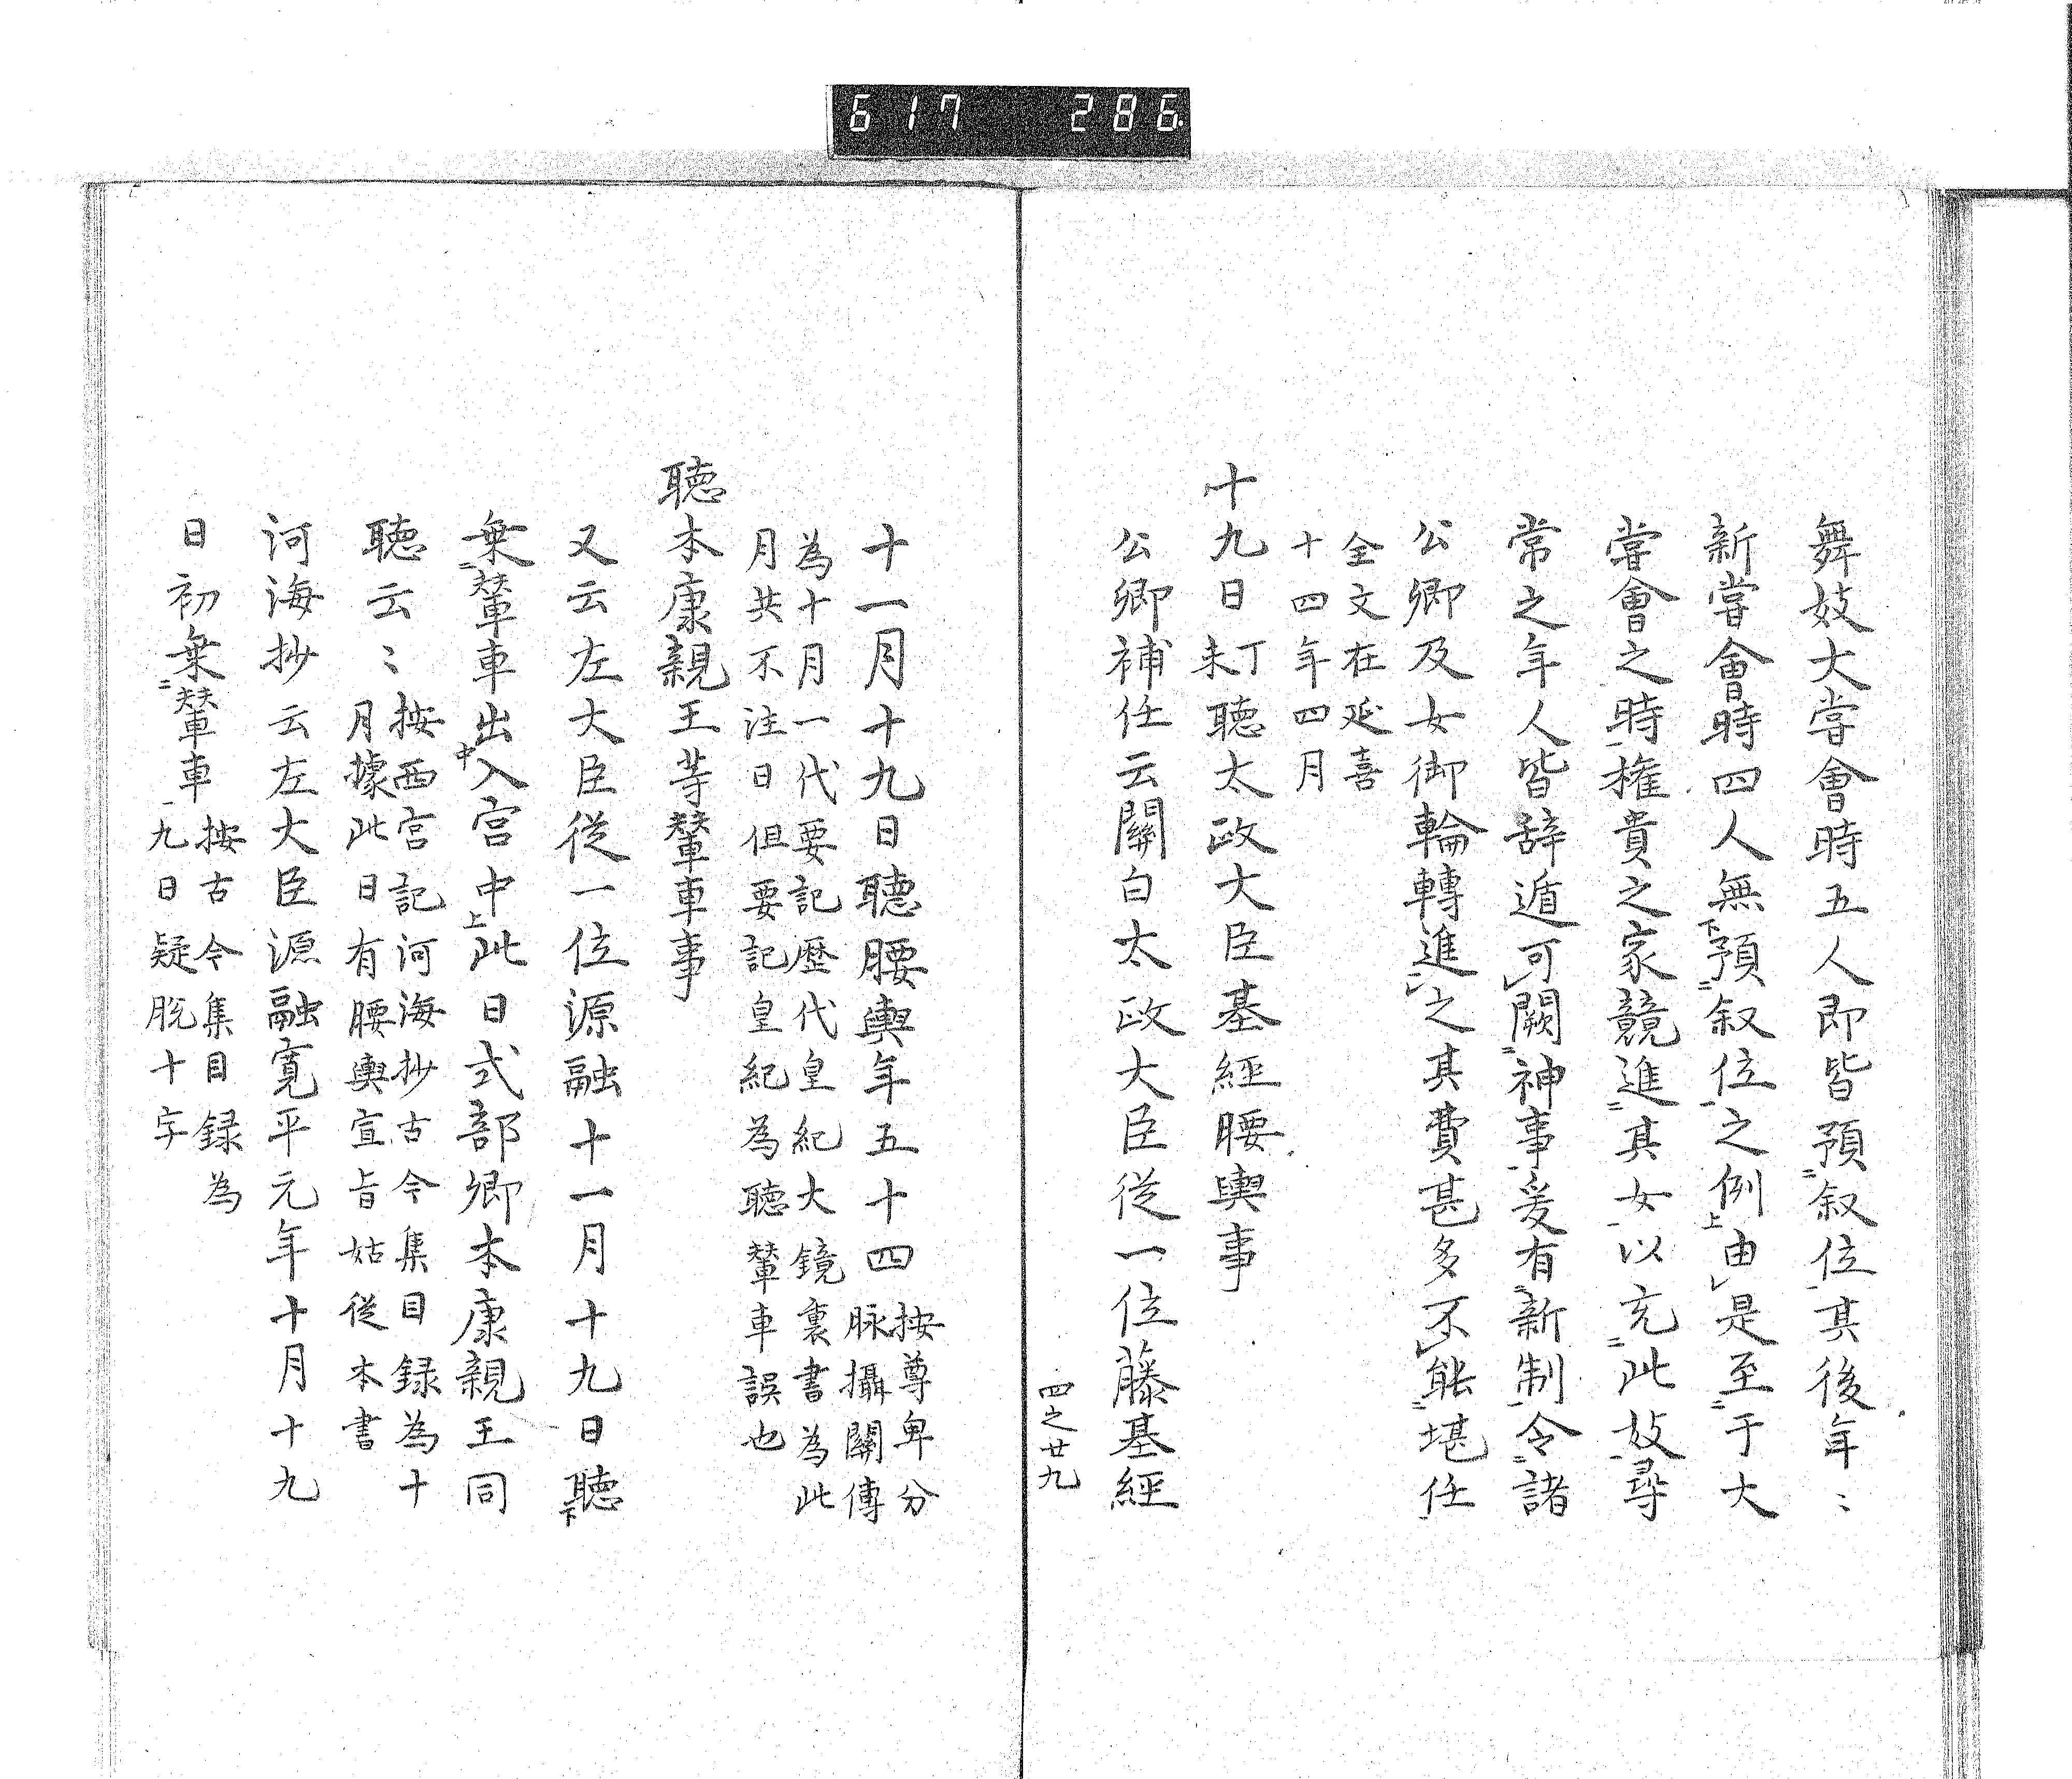 617 286
舞妓大嘗會時五人即皆預叙位其後年〻
新嘗會時四人無預叙位之例由是至于大
嘗會之時權貴之家競進其女以充此妓尋
常之年人皆辞遁可闕神事爰有新制令諸
公卿及女御輪轉進之其費甚多不能堪任
全文在延喜
十四年四月
十九日丁未聴太政大臣基經腰輿事
公卿補任云關白太政大臣従一位藤基經
四之廿九
十一月十九日聴腰輿年五十四按尊卑分
脉攝關傳
為十月一代要記歴代皇紀大鏡裏書為此
月共不注日但要記皇紀為聴輦車誤也
聴本康親王等輦車事
又云左大臣従一位源融十一月十九日聴
乗輦車出入宮中此日式部卿本康親王同
聴云〻按西宮記河海抄古今集目録為十
月據此日有腰輿宣旨姑従本書
河海抄云左大臣源融寛平元年十月十九
日初乗輦車按古今集目録為
九日疑脱十字